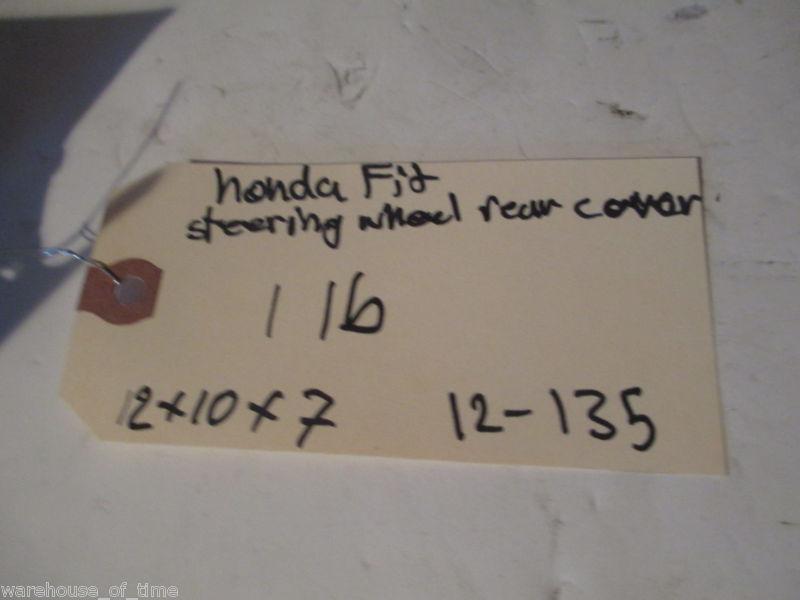 honda Fit
steering wheel rear cover
1 lb
12x10x7
12-135
warehouse_of_time